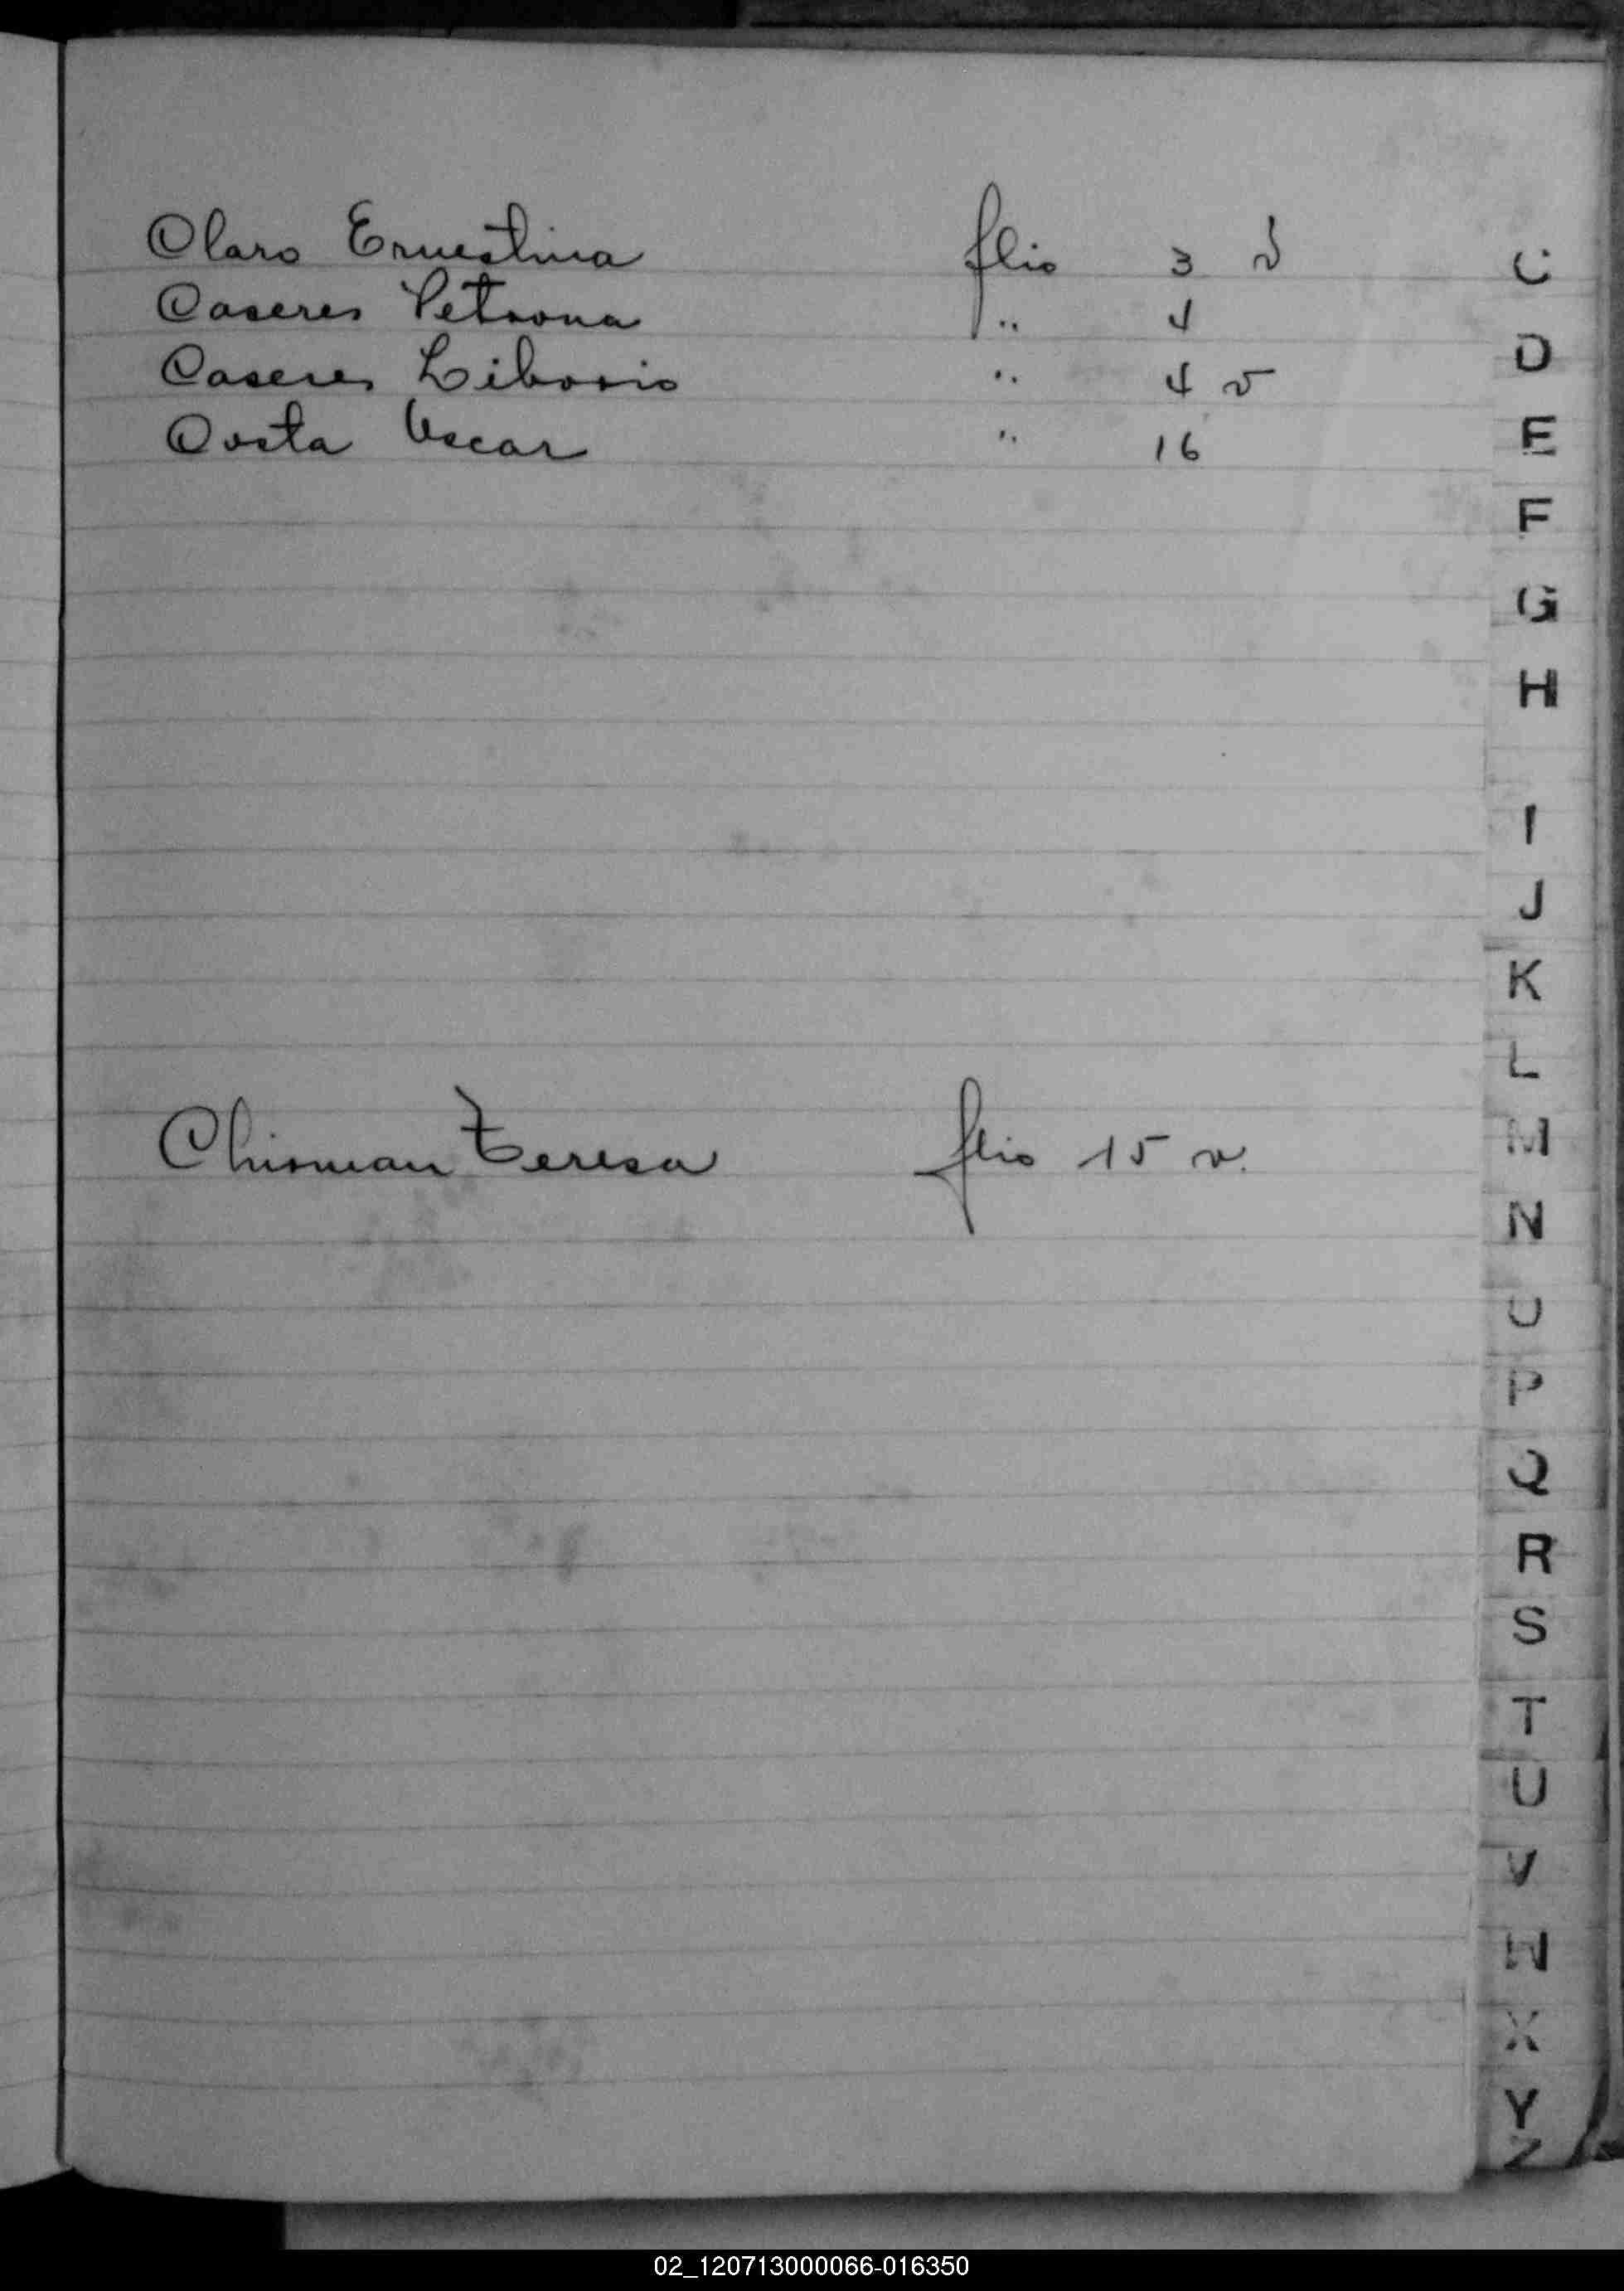 Claro Ernestina flio 3 v
Caseres Petrona " 4
Caseres Liborio " 4 v
Costa Oscar " 16
Chisman Teresa flio 15 v.
C
D
E
F
G
H
I
J
K
L
M
N
O
P
Q
R
S
T
U
V
W
X
Y
Z
02_120713000066-016350